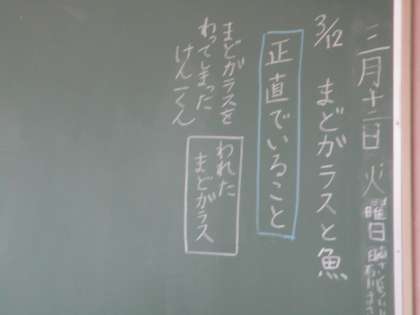 三月十二日 火曜日
3/12 まどガラスと魚
正直でいること
まどガラスを
わってしまった
けん一くん
われた
まどガラス